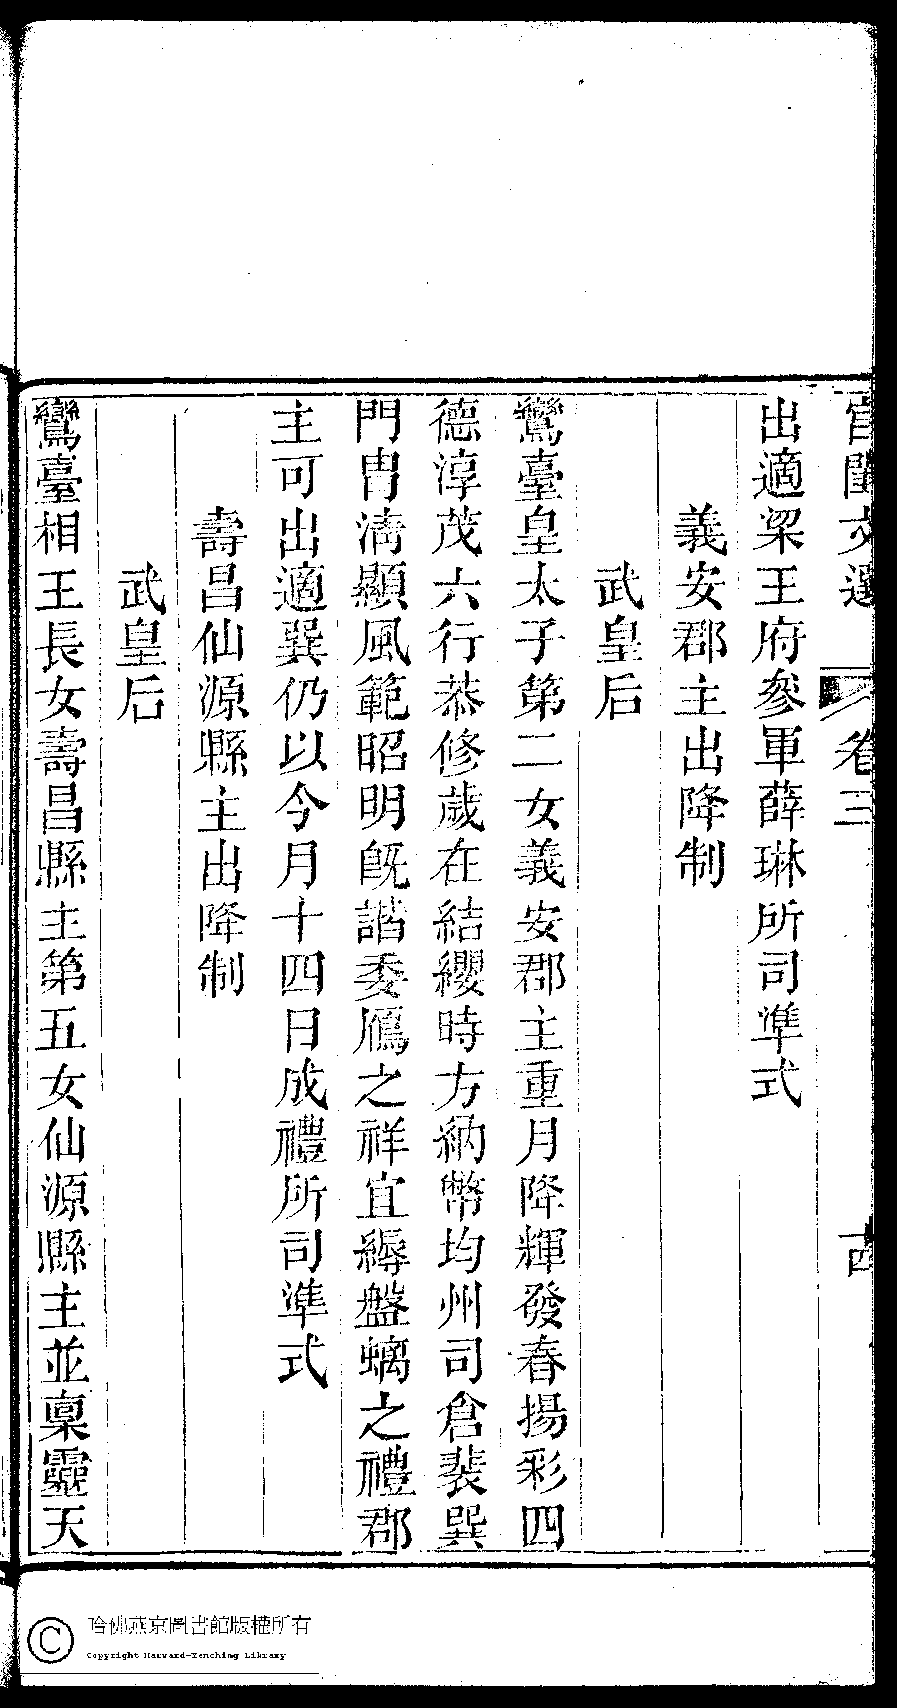 宮閨文選 卷三 古
出適梁王府參軍薛琳所司準式
義安郡主出降制
武皇后
鸞臺皇太子第二女義安郡主重月降輝發春揚彩四
德淳茂六行恭修歲在結纓時方納幣均州司倉裴巽
門胄淸顯風範昭明旣諧委鴈之祥宜縟盤螭之禮郡
主可出適巽仍以今月十四日成禮所司準式
壽昌仙源縣主出降制
武皇后
鸞臺相王長女壽昌縣主第五女仙源縣主並稟靈天
哈佛燕京圖書館版權所有
Copyright Harvard-Yenching Library